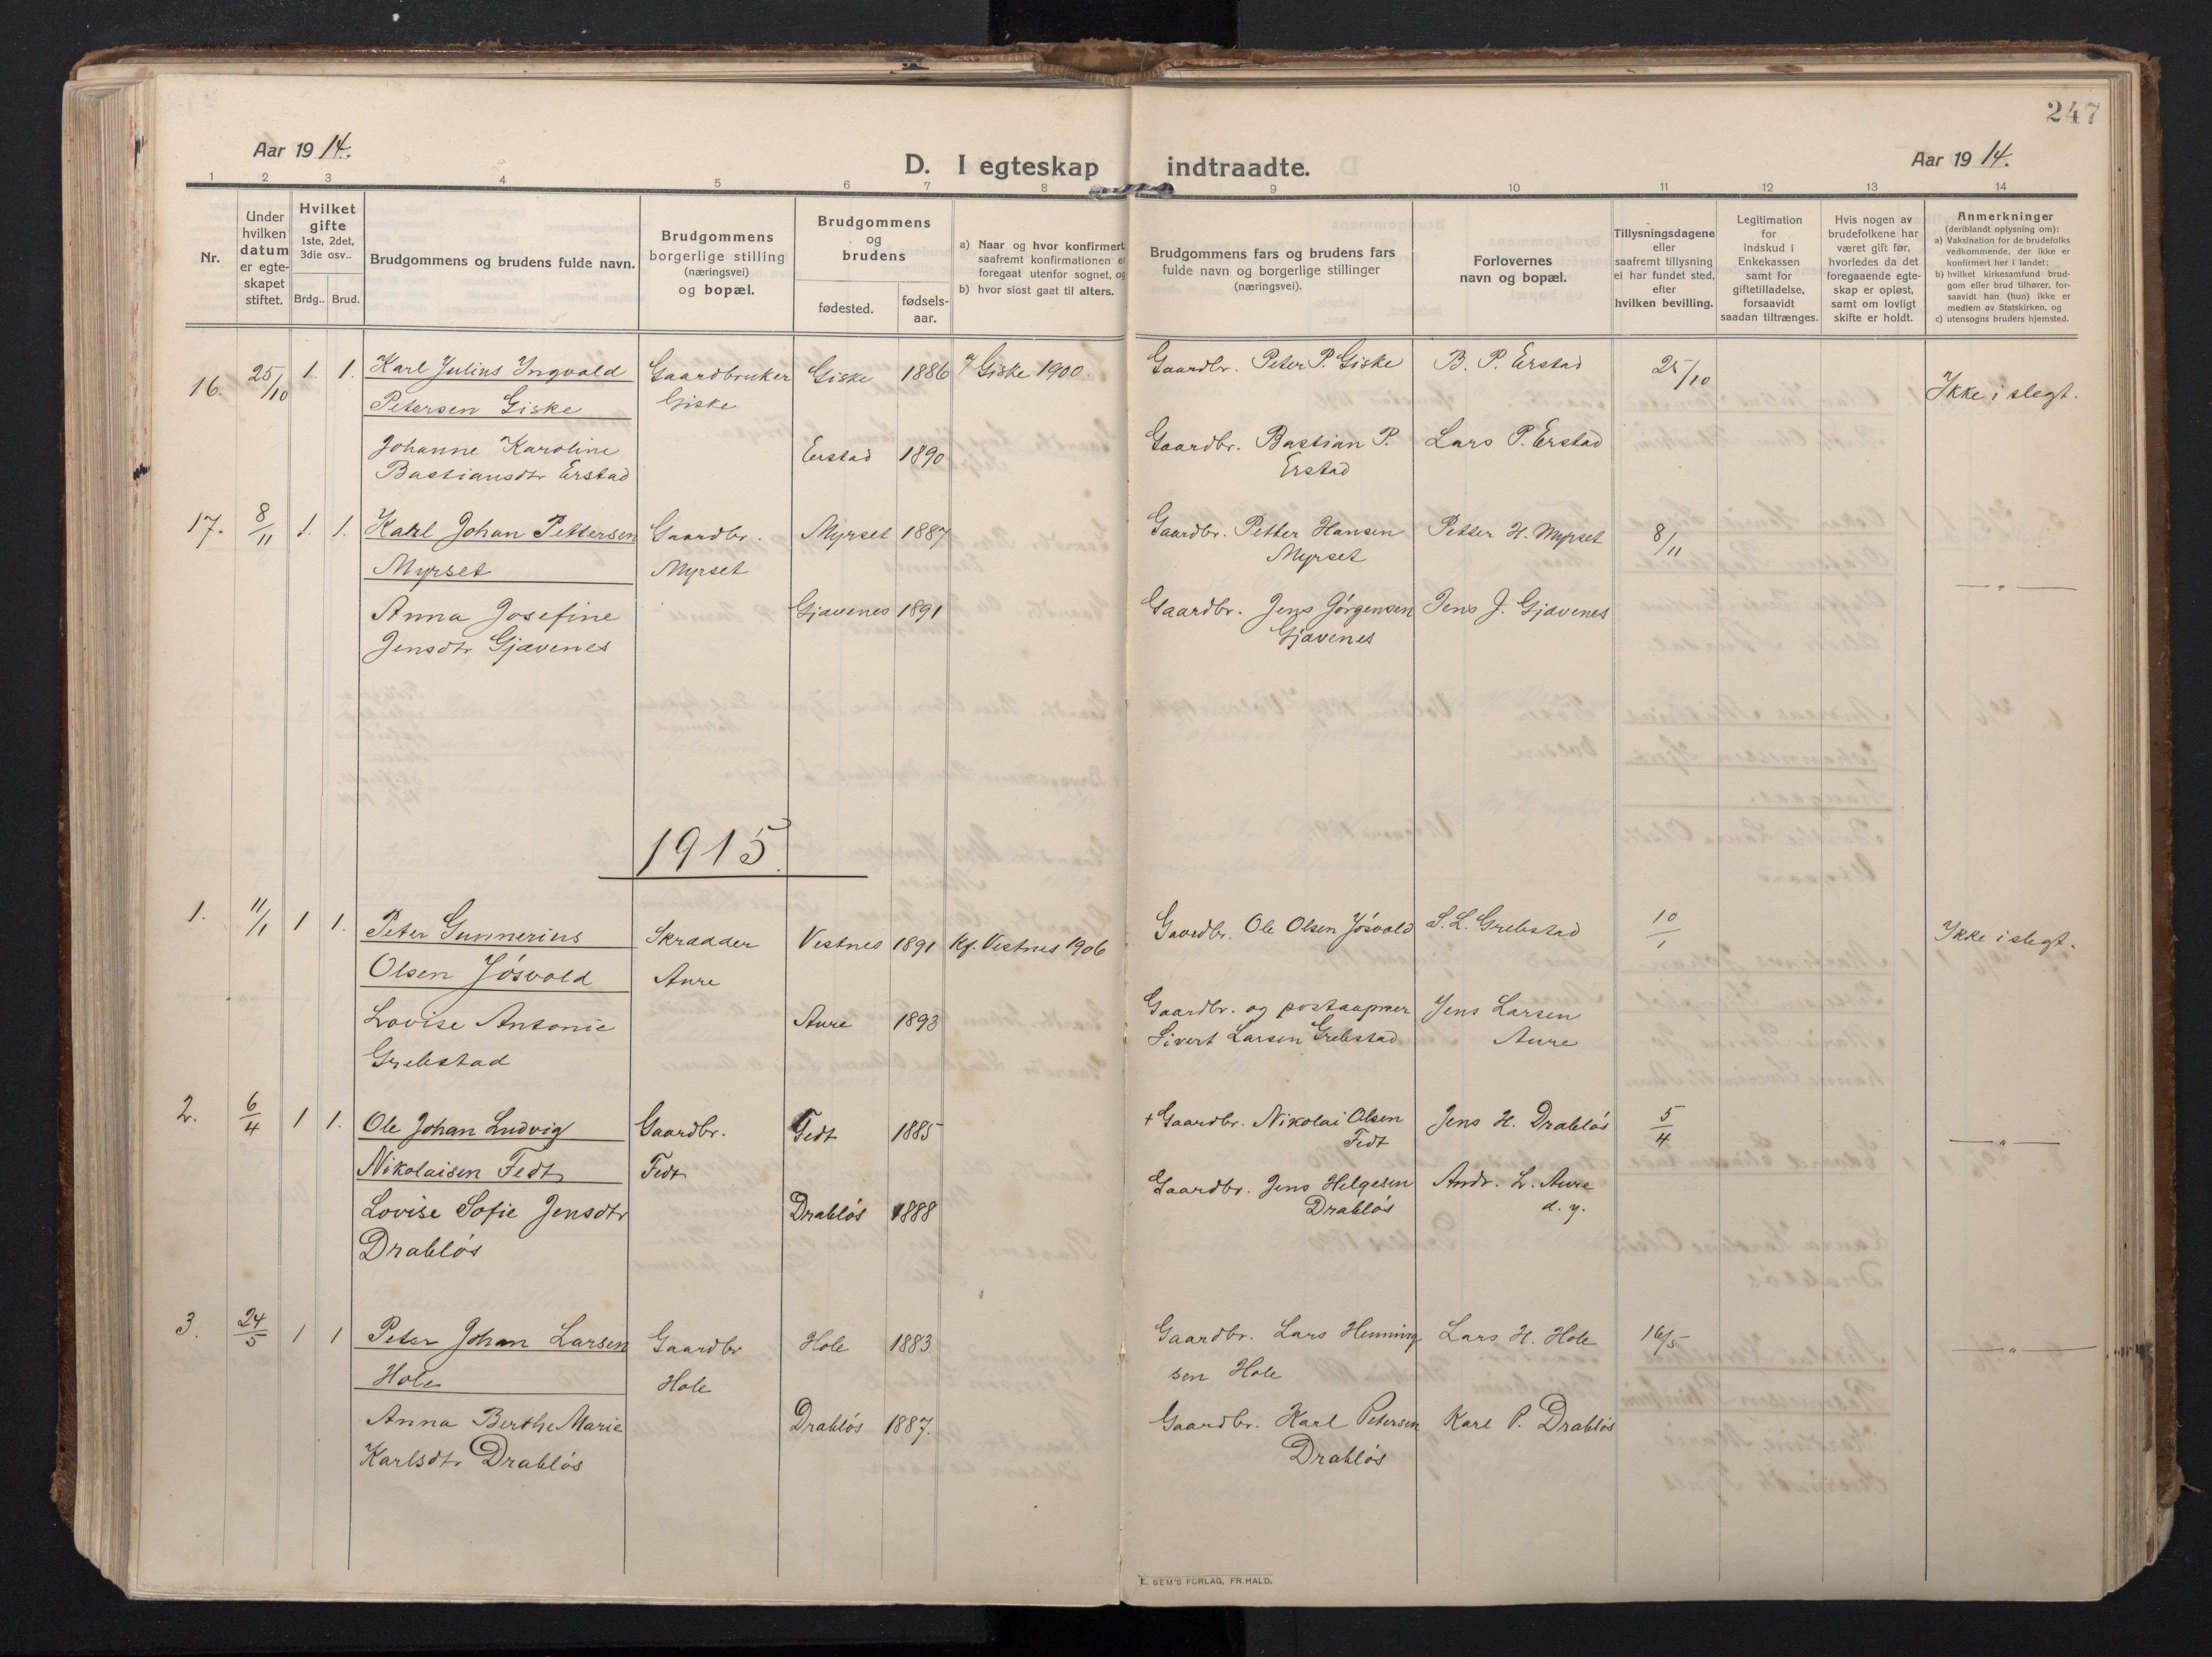 247
Aar 1914.
D. I egteskap indtraadte.
Aar 1914.
1 2 3 4 5 6 7 8 9 10 11 12 13 14
Nr.
Under
hvilken
datum
er egte-
skapet
stiftet.
Hvilket
gifte
1ste, 2det,
3die osv..
Brdg.. Brud.
Brudgommens og brudens fulde navn.
Brudgommens
borgerlige stilling
(næringsvei)
og bopæl.
Brudgommens
og
brudens
fødested.
fødsels-
aar.
a) Naar og hvor konfirmert
saafremt konfirmationen er
foregaat utenfor sognet, og
b) hvor sidst gaat til alters.
Brudgommens fars og brudens fars
fulde navn og borgerlige stillinger
(næringsvei).
Forlovernes
navn og bopæl.
Tillysningsdagene
eller
saafremt tillysning
ei har fundet sted,
efter
hvilken bevilling.
Legitimation
for
indskud i
Enkekassen
samt for
giftetilladelse,
forsaavidt
saadan tiltrænges.
Hvis nogen av
brudefolkene har
været gift før,
hvorledes da det
foregaaende egte-
skap er opløst,
samt om lovligt
skifte er holdt.
Anmerkninger
(deriblandt oplysning om):
a) Vaksination for de brudefolks
vedkommende, der ikke er
konfirmert her i landet;
b) hvilket kirkesamfund brud-
gom eller brud tilhører, for-
saavidt han (hun) ikke er
medlem av Statskirken, og
c) utensogns bruders hjemsted.
16. 25/10 1. 1. Karl Julius Ingvald Gaardbruker Giske 1886 a) Giske 1900. Gaardbr. Peter P. Giske B. P. Erstad 25/10 Ikke i slegt.
Petersen Giske Giske
Johanne Karoline Erstad 1890 Gaardbr. Bastian P. Lars P. Erstad
Bastiansdtr Erstad Erstad
17. 8/11 1. 1. Karl Johan Pettersen Gaardbr. Myrset 1887 Gaardbr. Petter Hansen Petter H. Myrset 8/11
Myrset Myrset Myrset — " —
Anna Josefine Gjævenes 1891 Gaardbr. Jens Jørgensen Jens J. Gjævenes
Jensdtr Gjævenes Gjævenes
1915.
1. 11/1 1 1. Peter Gunnerius Skrædder Vestnes 1891 Kf. Vestnes 1906 Gaardbr. Ole Olsen Jøsvold S. L. Grebstad 10/1 Ikke i slegt.
Olsen Jøsvold Aure
Lovise Antonie Aure 1893 Gaardbr. og postaapner Jens Larsen
Grebstad Sivert Larsen Grebstad Aure
2. 6/4 1 1. Ole Johan Ludvig Gaardbr. Fedt 1885 + Gaardbr. Nikolai Olsen Jens H. Drabløs 5/4 — " —
Nikolaisen Fedt Fedt Fedt
Lovise Sofie Jensdtr Drabløs 1888 Gaardbr. Jens Helgesen Andr. L. Aure
Drabløs Drabløs d. y.
3. 24/5 1 1 Peter Johan Larsen Gaardbr Hole 1883. Gaardbr. Lars Henning Lars H. Hole 16/5 — " —
Hole Hole sen Hole
Anna Berthe Marie Drabløs 1887. Gaardbr. Karl Petersen Karl P. Drabløs
Karlsdtr Drabløs Drabløs
E. SEM'S FORLAG, FR. HALD.